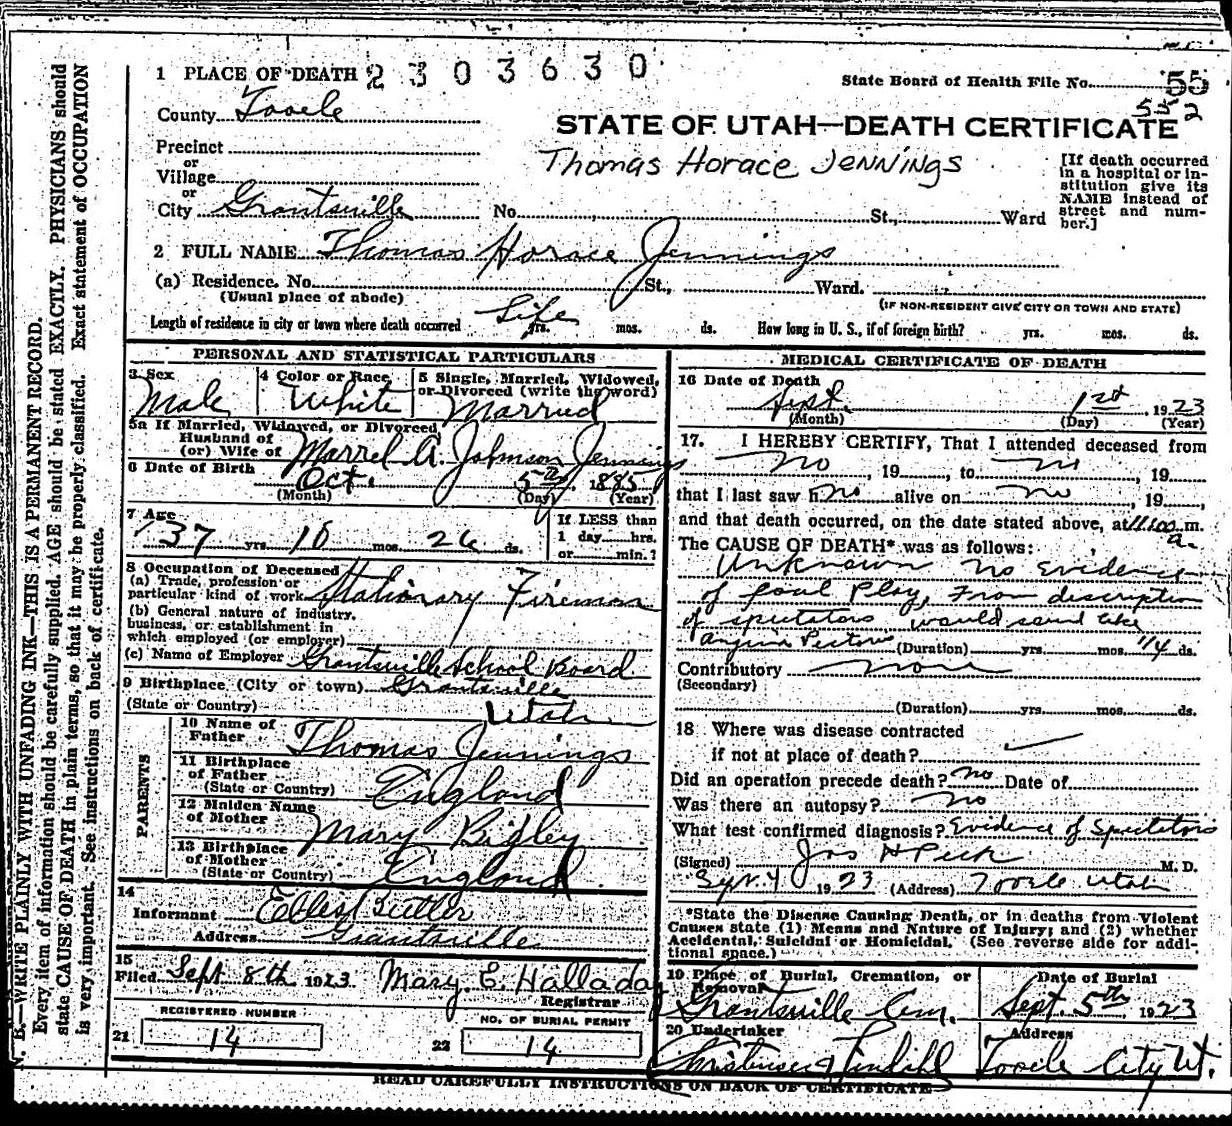 1 PLACE OF DEATH 2 3 0 3 6 3 0
State Board of Health File No. 55
552
County Tooele
STATE OF UTAH—DEATH CERTIFICATE
Precinct
or
Village
or
City Grantsville No. St., Ward
Thomas Horace Jennings
[If death occurred
in a hospital or in-
stitution give its
NAME instead of
street and num-
ber.]
2 FULL NAME Thomas Horace Jennings
(a) Residence. No. St., Ward.
(Usual place of abode) (IF NON-RESIDENT GIVE CITY OR TOWN AND STATE)
Length of residence in city or town where death occurred Life yrs. mos. ds. How long in U. S., if of foreign birth? yrs. mos. ds.
PERSONAL AND STATISTICAL PARTICULARS
3 Sex 4 Color or Race 5 Single, Married, Widowed,
or Divorced (write the word)
Male White Married
5a If Married, Widowed, or Divorced
Husband of
(or) Wife of Marrel A. Johnson Jennings
6 Date of Birth Oct. 5th, 1885
(Month) (Day) (Year)
7 Age If LESS than
1 day hrs.
or min.?
37 yrs. 10 mos. 26 ds.
8 Occupation of Deceased
(a) Trade, profession or
particular kind of work Stationary Fireman
(b) General nature of industry,
business, or establishment in
which employed (or employer)
(c) Name of Employer Grantsville School Board
9 Birthplace (City or town) Grantsville
(State or Country) Utah
PARENTS
10 Name of
Father Thomas Jennings
11 Birthplace
of Father
(State or Country) England
12 Maiden Name
of Mother Mary Bigley
13 Birthplace
of Mother
(State or Country) England
14
Informant Butler
Address Grantsville
15
Filed Sept 8th 1923 Mary E. Halladay
Registrar
REGISTERED NUMBER NO. OF BURIAL PERMIT
21 14 22 14
MEDICAL CERTIFICATE OF DEATH
16 Date of Death
Sept. 1st, 1923
(Month) (Day) (Year)
17. I HEREBY CERTIFY, That I attended deceased from
no, 19 to no, 19
that I last saw h no alive on no, 19
and that death occurred, on the date stated above, at 11:00 a. m.
The CAUSE OF DEATH* was as follows:
Unknown no Evidence
of foul Play, From discription
of spectators would sound like
angina Pectoris (Duration) yrs. mos. 1/4 ds.
Contributory none
(Secondary)
(Duration) yrs. mos. ds.
18 Where was disease contracted
if not at place of death?
Did an operation precede death? no Date of
Was there an autopsy? no
What test confirmed diagnosis? Evidence of Spectators
(Signed) Jos H Peck M. D.
Sept 4 1923 (Address) Tooele Utah
*State the Disease Causing Death, or in deaths from Violent
Causes state (1) Means and Nature of Injury; and (2) whether
Accidental, Suicidal or Homicidal. (See reverse side for addi-
tional space.)
19 Place of Burial, Cremation, or
Removal Date of Burial
Grantsville Cem. Sept. 5th 1923
20 Undertaker Address
Tooele City Ut.
READ CAREFULLY INSTRUCTIONS ON BACK OF CERTIFICATE
N. B.—WRITE PLAINLY WITH UNFADING INK—THIS IS A PERMANENT RECORD.
Every item of information should be carefully supplied. AGE should be stated EXACTLY. PHYSICIANS should
state CAUSE OF DEATH in plain terms, so that it may be properly classified. Exact statement of OCCUPATION
is very important. See instructions on back of certificate.